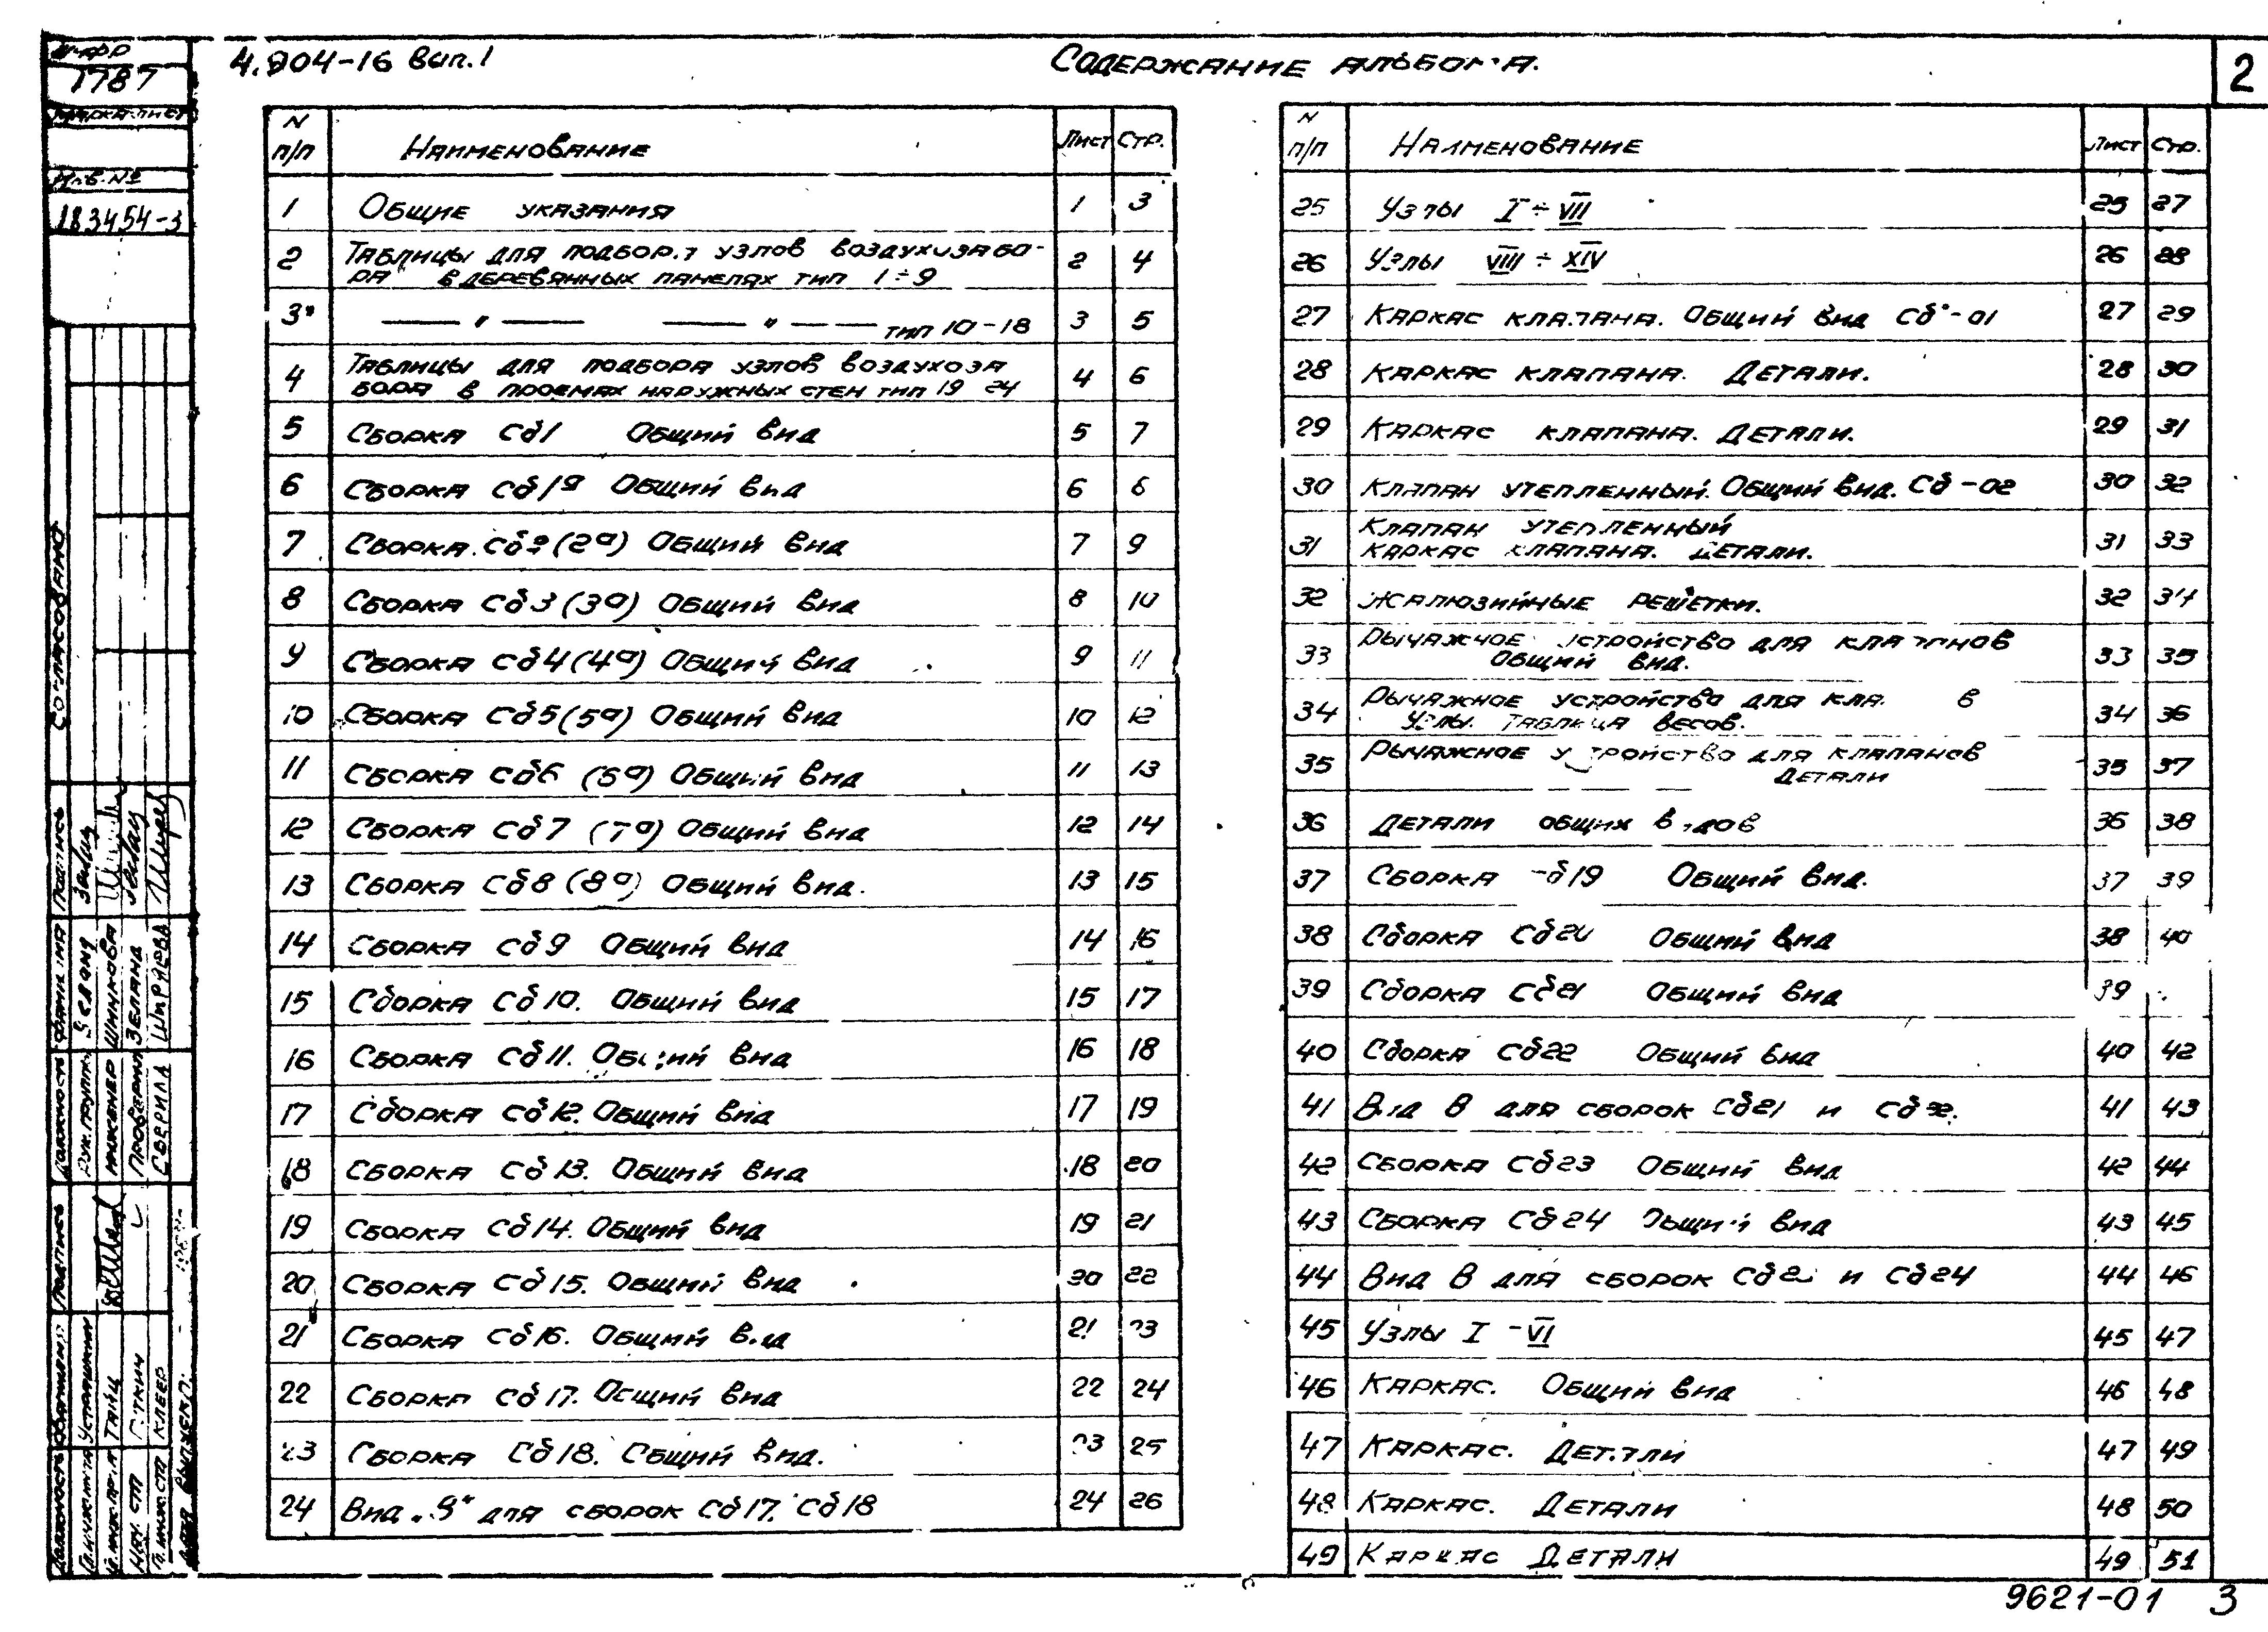 4.904-16 Вып.1
Содержание альбома.
2
Шифр
1787
Марка-лист
Инв. №
183454-3
Согласовано
N п/п Наименование Лист Стр.
1 Общие указания 1 3
2 Таблицы для подбора узлов воздухозабо-
ра в деревянных панелях тип 1÷9 2 4
3 — " — — " — — тип 10-18 3 5
4 Таблицы для подбора узлов воздухоза
бора в проемах наружных стен тип 19 24 4 6
5 Сборка Сб1 Общий вид 5 7
6 Сборка Сб1а Общий вид 6 8
7 Сборка Сб2(2а) Общий вид 7 9
8 Сборка Сб3(3а) Общий вид 8 10
9 Сборка Сб4(4а) Общий вид 9 11
10 Сборка Сб5(5а) Общий вид 10 12
11 Сборка Сб6 (6а) Общий вид 11 13
12 Сборка Сб7 (7а) Общий вид 12 14
13 Сборка Сб8(8а) Общий вид. 13 15
14 Сборка Сб9 Общий вид 14 16
15 Сборка Сб10. Общий вид 15 17
16 Сборка Сб11. Общий вид 16 18
17 Сборка Сб12. Общий вид 17 19
18 Сборка Сб13. Общий вид 18 20
19 Сборка Сб14. Общий вид 19 21
20 Сборка Сб15. Общий вид 20 22
21 Сборка Сб16. Общий вид 21 23
22 Сборка Сб17. Общий вид 22 24
23 Сборка Сб18. Общий вид. 23 25
24 Вид „В" для сборок Сб17. Сб18 24 26
N п/п Наименование Лист Стр.
25 Узлы I÷VII 25 27
26 Узлы VIII÷XIV 26 28
27 Каркас клапана. Общий вид Сб-01 27 29
28 Каркас клапана. Детали. 28 30
29 Каркас клапана. Детали. 29 31
30 Клапан утепленный. Общий вид. Сб-02 30 32
31 Клапан утепленный
каркас клапана. Детали. 31 33
32 Жалюзийные решетки. 32 34
33 Рычажное устройство для клапанов
Общий вид. 33 35
34 Рычажное устройство для кла в
Узлы. Таблица весов. 34 36
35 Рычажное устройство для клапанов
Детали 35 37
36 Детали общих видов 36 38
37 Сборка Сб19 Общий вид. 37 39
38 Сборка Сб20 Общий вид 38 40
39 Сборка Сб21 Общий вид 39
40 Сборка Сб22 Общий вид 40 42
41 Вид В для сборок Сб21 и Сб22. 41 43
42 Сборка Сб23 Общий вид 42 44
43 Сборка Сб24 Общий вид 43 45
44 Вид В для сборок Сб2 и Сб24 44 46
45 Узлы I -VI 45 47
46 Каркас. Общий вид 46 48
47 Каркас. Детали 47 49
48 Каркас. Детали 48 50
49 Каркас Детали 49 51
Должность Фамилия Подпись
Рук. группы
Инженер Шнинкова
Проверил Зеланд
Сверила Ширяева
Должность Фамилия Подпись
Гл. инж. инта Усташкин
Гл. инж. пр-а Тайц
Нач. СТО
Гл. инж. СТО Клебер
Дата выпуска:
9621-01 3